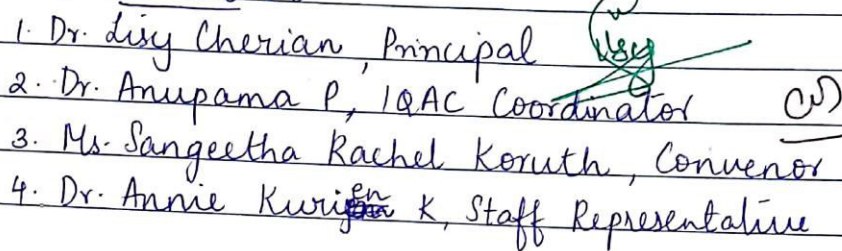 1. Dr. Lisy Cherian, Principal
2. Dr. Anupama P, IQAC Coordinator
3. Ms. Sangeetha Rachel Koruth, Convenor
4. Dr. Annie Kurien K, Staff Representative